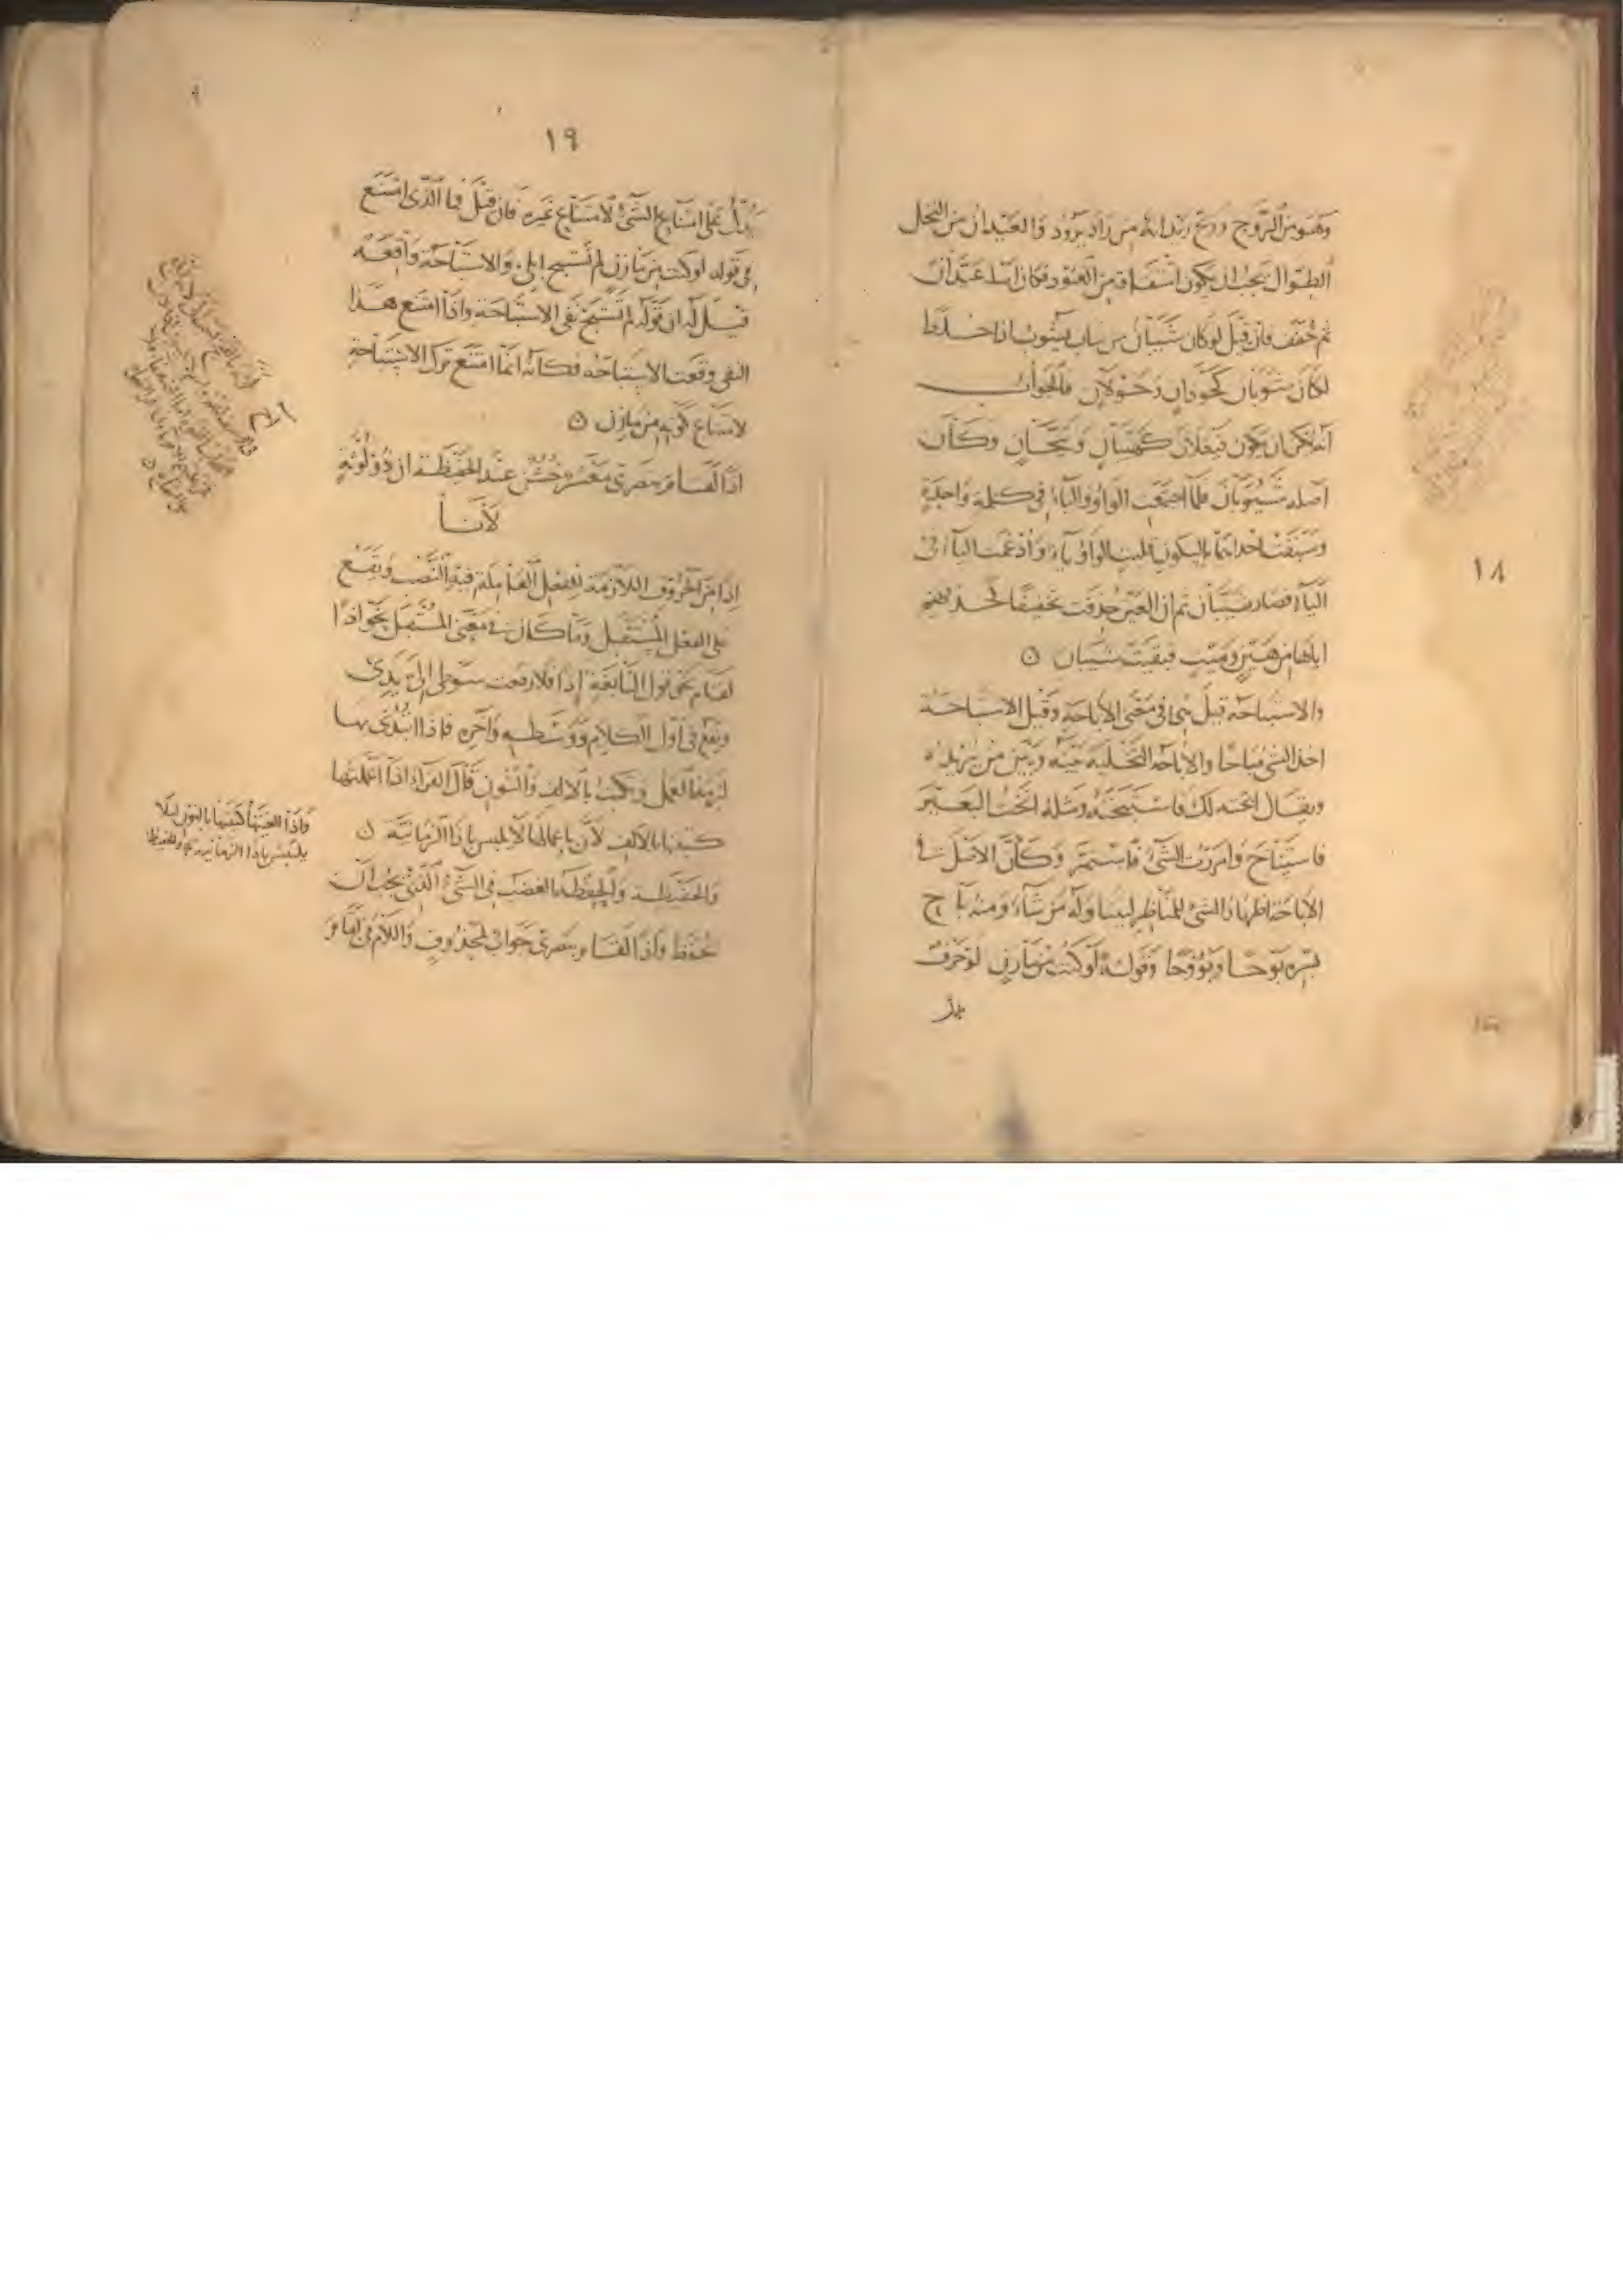 وهو من الروح وريح ريدانة من راد يرود والعيدان من النخل
الطوال يجب ان يكون اشتقاقه من العود فكان اصله عيّدان
ثم خفف فان قيل لو كان شيبان من باب يشوب اذا خلط
لكان شوبان كخوذان وحولان فالجواب
انه يمكن ان يكون فيعلان كهيبان وتيحان وكان
اصله شيوبان فلما اجتمعت الواو والياء في كلمة واحدة
وسبقت احداهما بالسكون قلبت الواو ياء وادغمت الياء في
الياء فصار شيّبان ثم ان العين حذفت تخفيفا كحذفهم
اياها من هين وميت فبقيت شيبان
والاستباحة قيل هي في معنى الاباحة وقيل الاستباحة
اخذ الشيء مباحا والاباحة التخلية بينه وبين من يريده
ويقال ابحته لك فاستبحته ومثله انخت البعير
فاستناخ وامررت الشيء فاستمر وكأن الاصل في
الاباحة اظهار الشيء للمناظر ليتناوله من شاء ومنه باح
بسره بوحا وبووحا وقوله لو كنت من مازن لو حرف
يدل
١٨
١٩
يدل على امتناع الشيء لامتناع غيره فان قيل فما الذي امتنع
في قوله لو كنت من مازن لم تستبح ابلي والاستباحة واقعة
قيل له ان قوله لم تستبح نفي الاستباحة واذا امتنع هذا
النفي وقعت الاستباحة فكأنه انما امتنع ترك الاستباحة
لامتناع كونه من مازن
اذا لقام بنصري معشر خشن عند الحفيظة ان ذو لوثة
لانا
اذا من الحروف اللازمة للفعل العاملة فيه النصب ويقع
على الفعل المستقبل وما كان في معنى المستقبل نحو اذا
لقام نحو قول النابغة إذا فلا رفعت سوطي الى يدي
ويقع في اول الكلام ووسطه وآخره فاذا ابتدئ بها
لزمها العمل ويكتب بالالف والنون قال الفراء اذا اعملتها
كتبتها بالالف لان باعمالها لا يلبس باذا الزمانية
والحفيظة والحفظة الغضب في الشيء الذي يجب ان
يحفظ واذا لقام بنصري جواب لمحذوف واللام في لقام
واذا الغيتها كتبتها بالنون لئلا
يلتبس باذا الزمانية